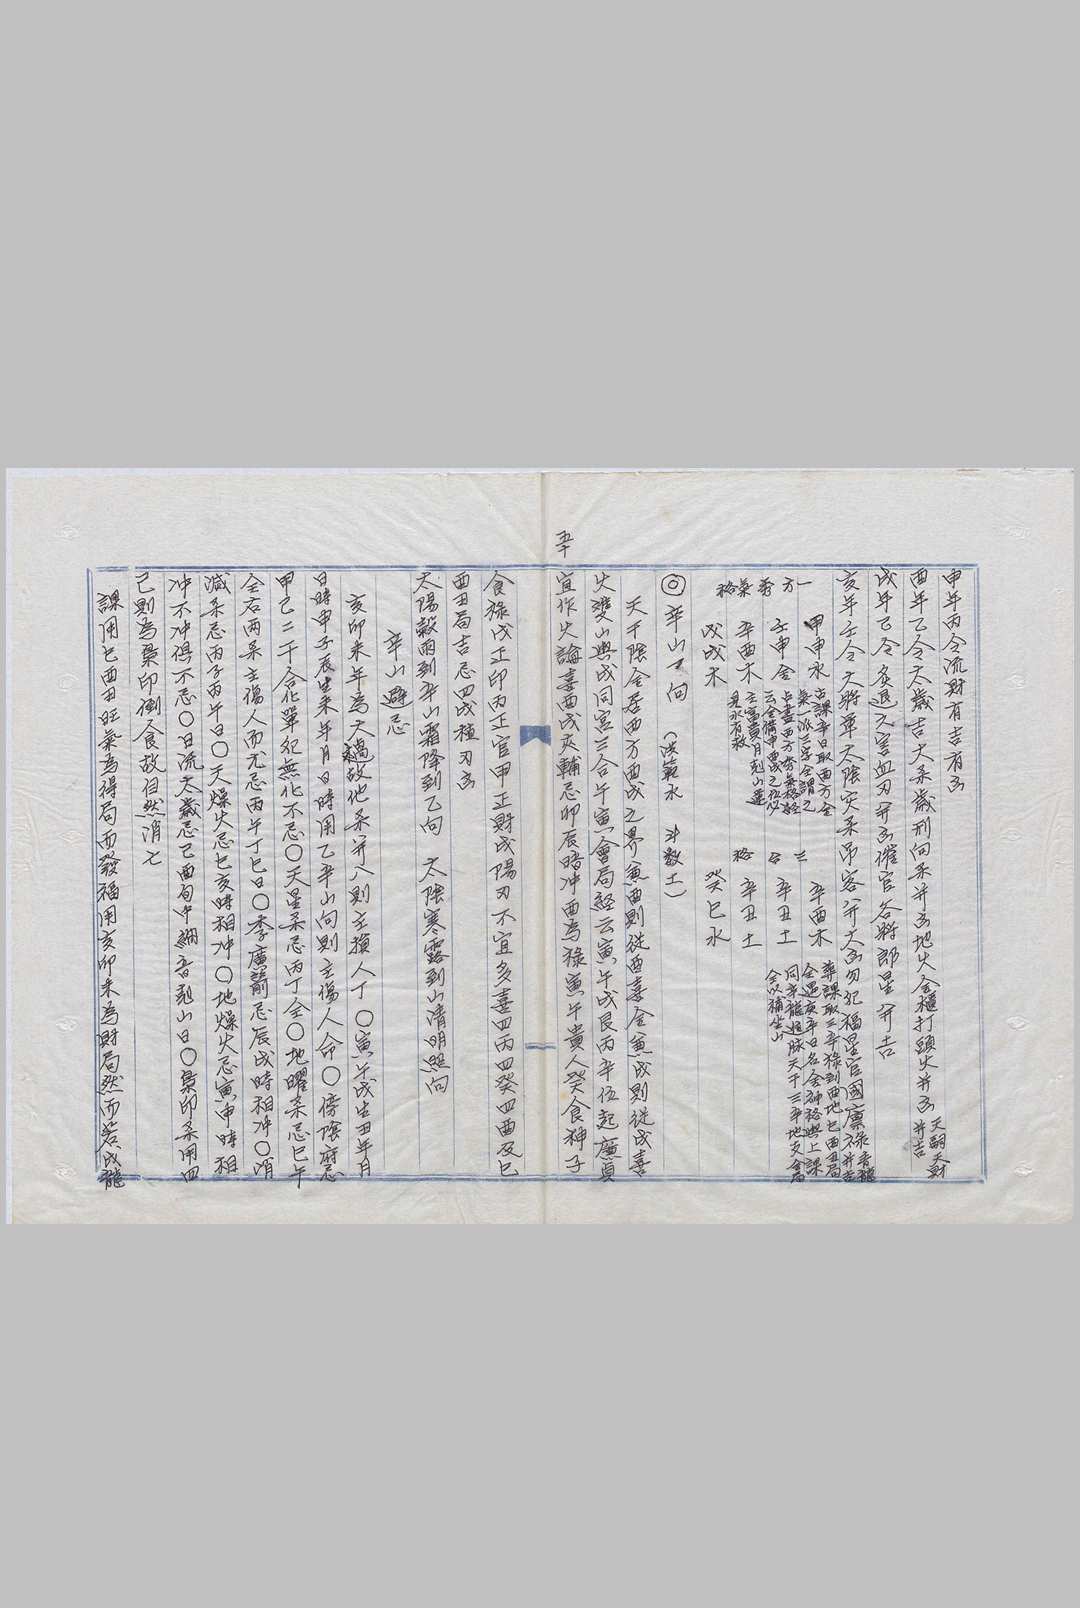 五十
申年丙合流財有吉有凶
酉年乙合太歲吉大杀歲刑向杀并凶地火金櫃打頭火并凶天嗣天財并吉
戌年己合灸退入害血刃并凶催官各將郎星并吉
亥年壬合大將軍太陰灾杀吊客并大凶勿犯福星官國廩祿青龍并吉
一方秀氣格
甲申水
壬申金
辛酉木
戊戌木
古課辛日取西方全
氣一派三字全謂之
占盡西方秀氣格經
云全備申酉戌之位
主富貴月剋山運
見水有救
三台格
辛酉木
辛丑土
辛丑土
癸巳水
葬課取三辛祿到酉地巳酉丑局
全遇庚辛日名金神格與上課
同辛龍過脉天干三辛地支會
金以補坐山
◎辛山乙向（洪範水　斗數土）
天干陰金居西方酉戌之界兼酉則從酉喜金兼戌則從戌喜
火雙山與戌同宮三合午寅會局經云寅午戌艮丙辛位起廉貞
宜作火論喜酉戌夾輔忌卯辰暗冲酉為祿寅午貴人癸食神子
食祿戊正印丙正官甲正財戌陽刃不宜多喜四丙四癸四酉及巳
酉丑局吉忌四戌積刃凶
太陽穀雨到辛山霜降到乙向　太陰寒露到山清明照向
辛山避忌
亥卯未年為大趨故他杀并入則主損人丁〇寅午戌生丑年月
日時申子辰生未年月日時用乙辛山向則主傷人命〇傍陰府忌
甲己二干合化單犯無化不忌〇天星杀忌丙丁全〇地曜杀忌巳午
全右兩杀主傷人而尤忌丙午丁巳日〇李廣箭忌辰戌時相冲〇消
滅杀忌丙子丙午日〇天燥火忌巳亥時相冲〇地燥火忌寅申時相
冲不冲俱不忌〇日流太歲忌己酉旬中納音剋山日〇梟印杀用四
己則為梟印倒食故自然消亡
課用巳酉丑旺氣為得局而發福用亥卯未為財局然而若戌龍